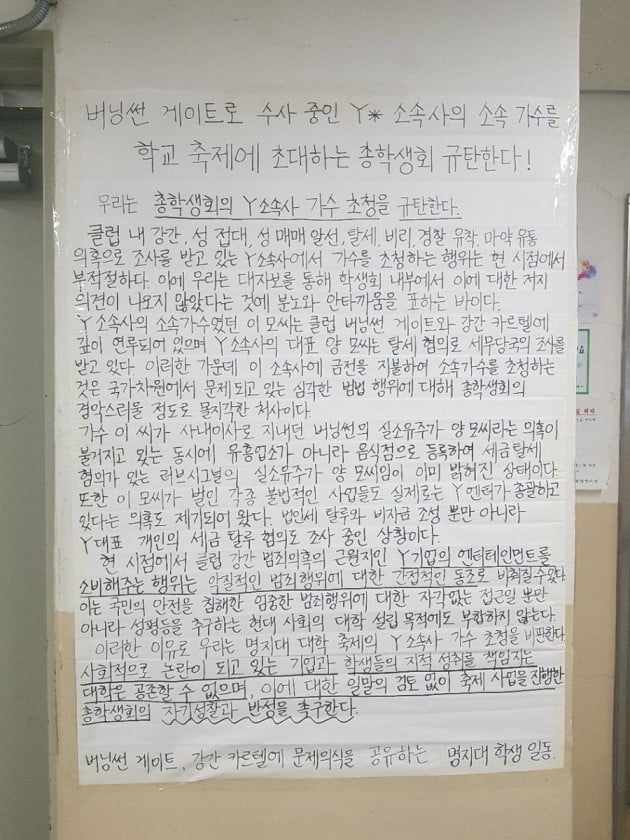 버닝썬 게이트로 수사 중인 Y* 소속사의 소속 가수를
학교 축제에 초대하는 총학생회 규탄한다!
우리는 총학생회의 Y소속사 가수 초청을 규탄한다.
클럽 내 강간, 성 접대, 성 매매 알선, 탈세, 비리, 경찰 유착, 마약 유통
의혹으로 조사를 받고 있는 Y소속사에서 가수를 초청하는 행위는 현 시점에서
부적절하다. 이에 우리는 대자보를 통해 학생회 내부에서 이에 대한 저지
의견이 나오지 않았다는 것에 분노와 안타까움을 표하는 바이다.
Y소속사의 소속가수였던 이 모씨는 클럽 버닝썬 게이트와 강간 카르텔에
깊이 연루되어 있으며 Y소속사의 대표 양 모씨는 탈세 혐의로 세무당국의 조사를
받고 있다. 이러한 가운데 이 소속사에 금전을 지불하여 소속가수를 초청하는
것은 국가차원에서 문제되고 있는 심각한 범법 행위에 대해 총학생회의
겸악스러울 정도로 몰지각한 처사이다.
가수 이 씨가 사내이사로 지내던 버닝썬의 실소유주가 양 모씨라는 의혹이
불거지고 있는 동시에 유흥업소가 아니라 음식점으로 등록하여 세금탈세
혐의가 있는 러브시그널의 실소유주가 양 모씨임이 이미 밝혀진 상태이다.
또한 이 모씨가 벌인 각종 불법적인 사업들도 실제로는 Y엔터가 총괄하고
있다는 의혹도 제기되어 왔다. 법인세 탈루와 비자금 조성 뿐만 아니라
Y대표 개인의 세금 탈루 혐의도 조사 중인 상황이다.
현 시점에서 클럽 강간 범죄의혹의 근원지인 Y기업의 엔터테인먼트를
소비해주는 행위는 악질적인 범죄행위에 대한 간접적인 동조로 비춰질 수 있다
이는 국민의 안전을 침해한 엄중한 범죄행위에 대한 자각없는 접근일 뿐만
아니라 성평등을 추구하는 현대 사회의 대학 설립 목적에도 부합하지 않는다.
이러한 이유로 우리는 명지대 대학 축제의 Y소속사 가수 초청을 비판한다.
사회적으로 논란이 되고 있는 기업과 학생들의 지적 성취를 책임지는
대학은 공존할 수 없으며, 이에 대한 일말의 검토 없이 축제 사업을 진행한
총학생회의 자기성찰과 반성을 촉구한다.
버닝썬 게이트, 강간 카르텔에 문제의식을 공유하는 명지대 학생 일동.